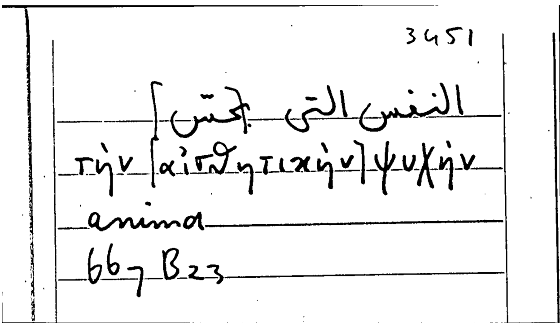 3451
النفس التى [تحسّ
τὴν [αἰσθητικὴν] ψυχὴν
anima
667 B23